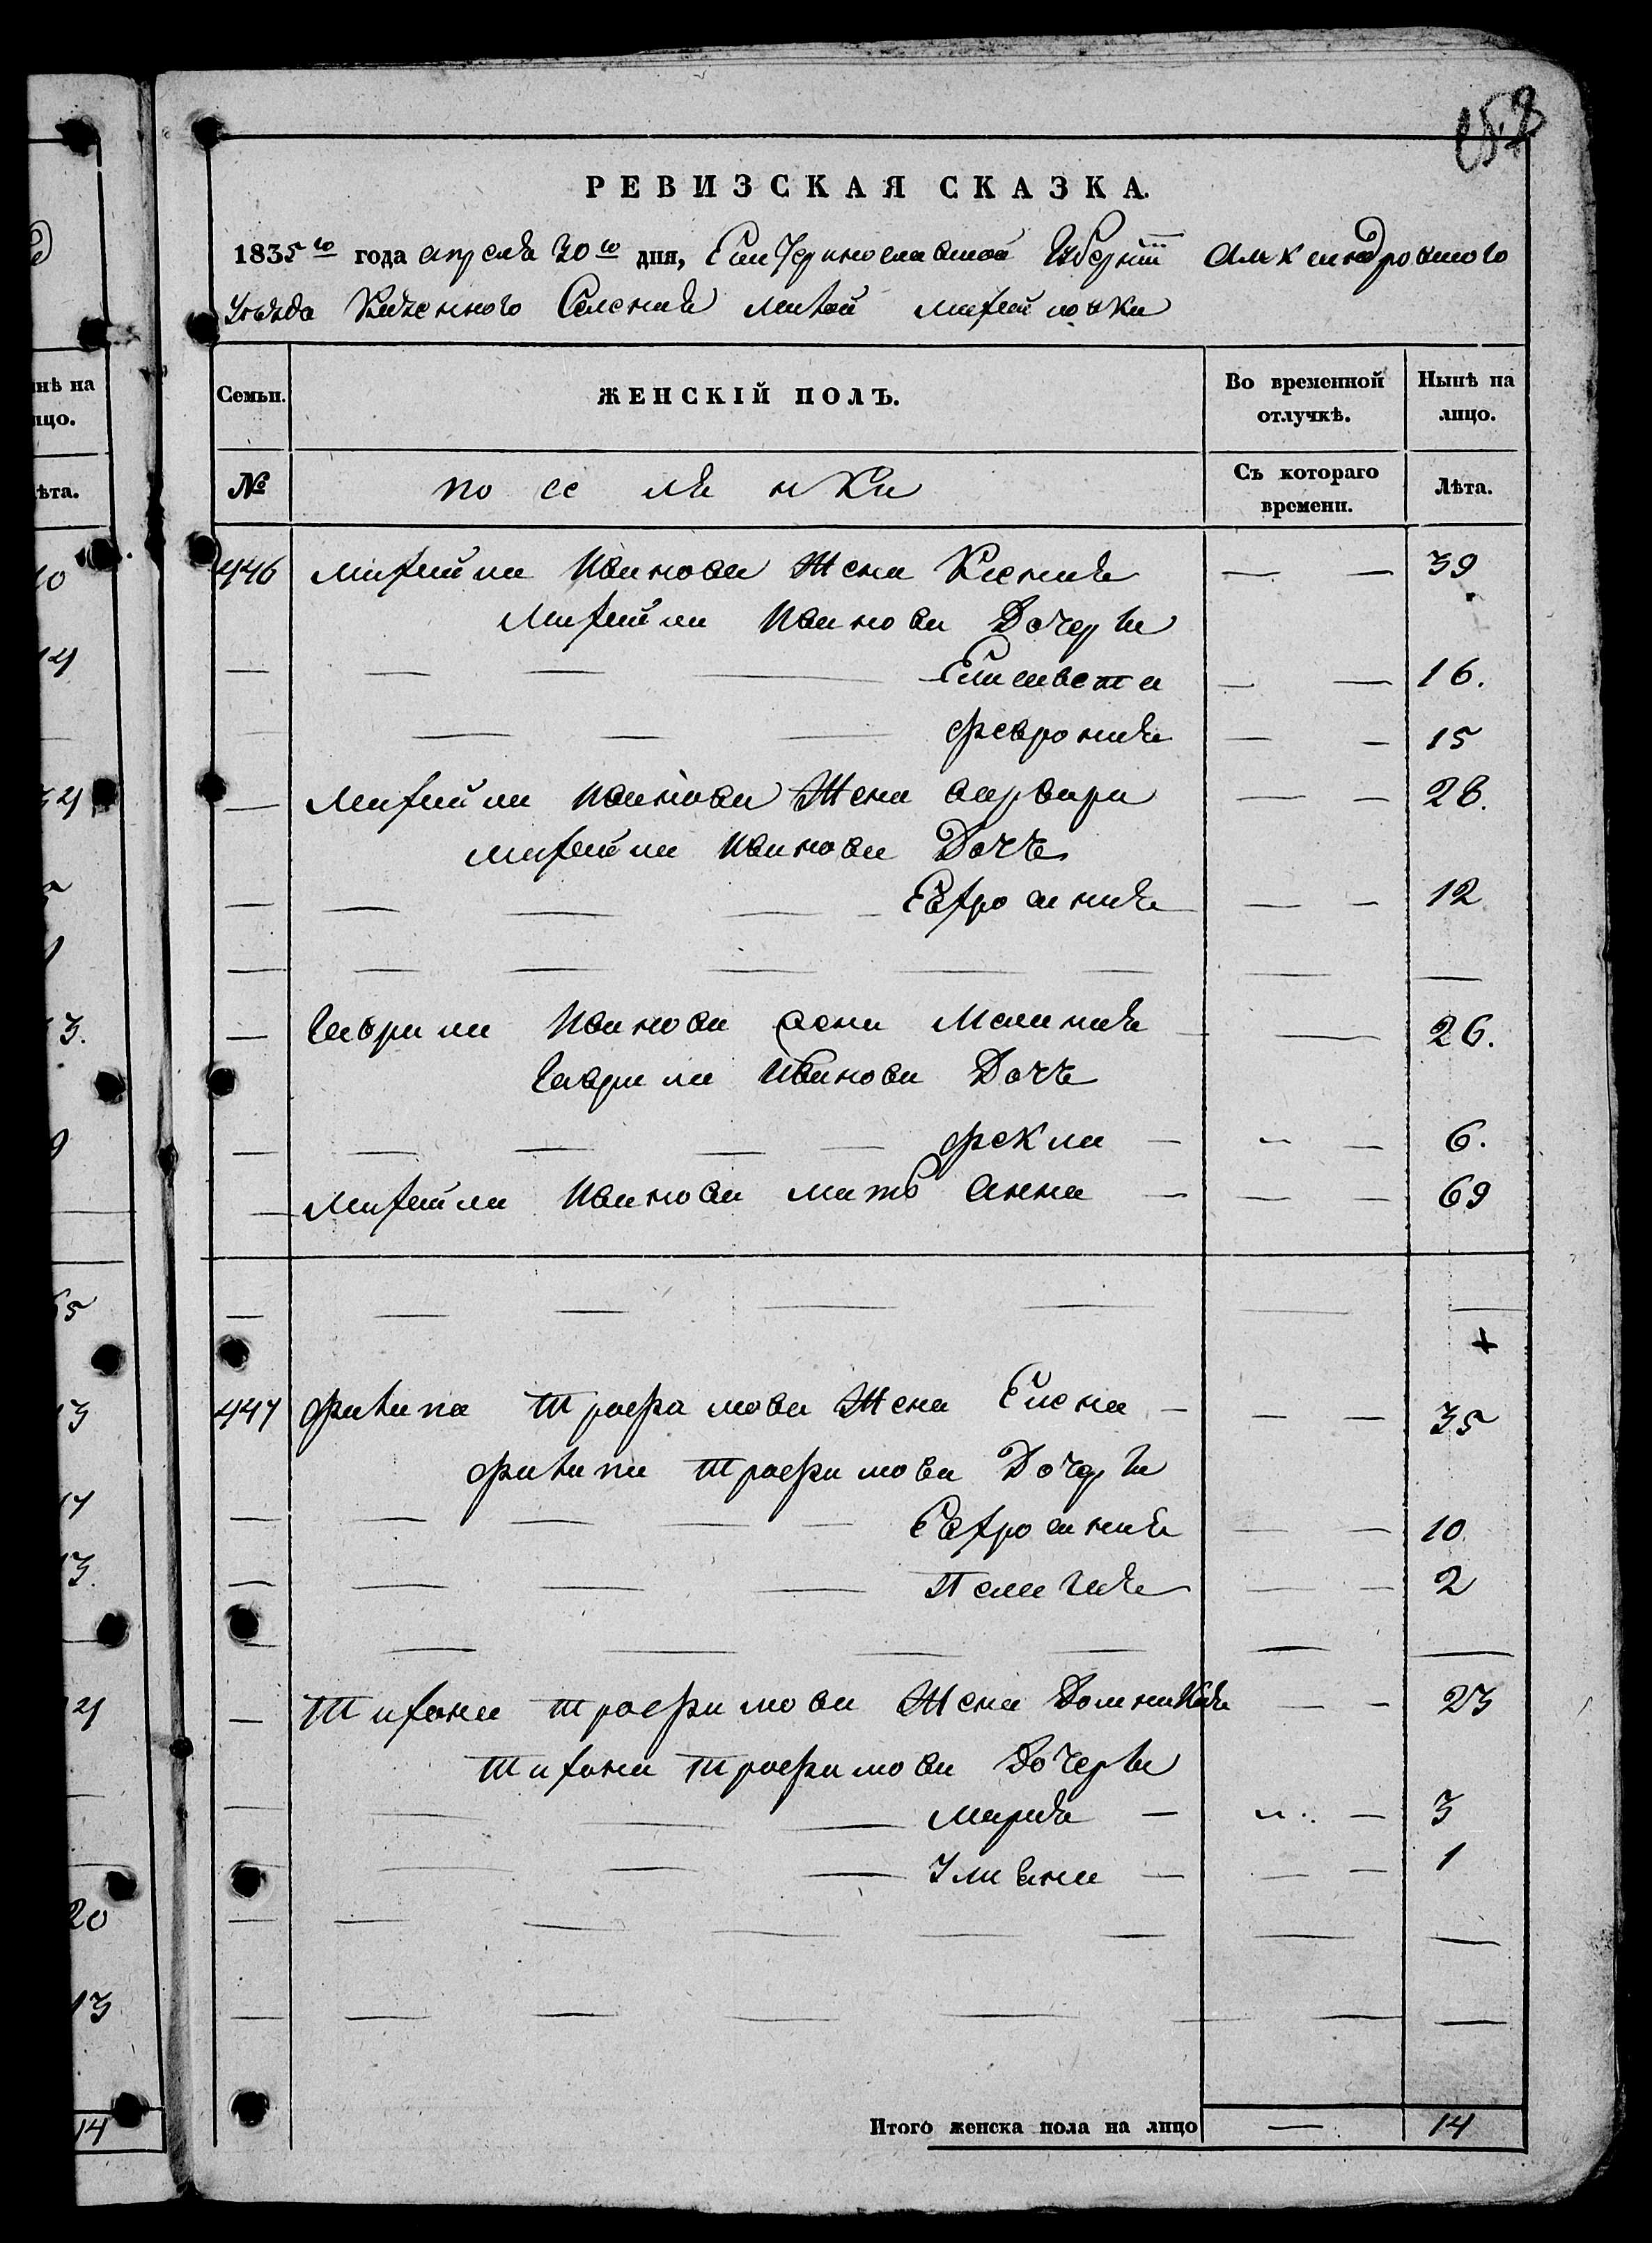 РЕВИЗСКАЯ СКАЗКА.
1835го года апреля 30го дня, Екатеринославской Губернiи Александровского
Уезда Казенного Селения Малой Михайловки
Семьи.
ЖЕНСКIЙ ПОЛЪ.
Во временной отлучкѣ.
Нынѣ на лицо.
№
поселянки
Съ котораго времени.
Лѣта.
446 Михайла Иванова Жена Ксения — — 39
Михайла Иванова Дочери
Елисавета — — 16.
Феврония — — 15
Михайла Иванова Жена Варвара — — 28.
Михайла Иванова Дочь
Евфросиния — — 12
Гаврила Иванова Жена Мелания — 26.
Гаврила Иванова Дочь
Фекла — — 6.
Михайла Иванова мать Анна — — 69
447 Филипа Трофимова Жена Елена — — 35
Филипа Трофимова Дочери
Евфросиния — — 10
Пелагия — — 2
Тихона Трофимова Жена Домникия — — 23
Тихона Трофимова Дочери
Мария — — 3
Улияна — — 1
Итого женска пола на лицо — 14